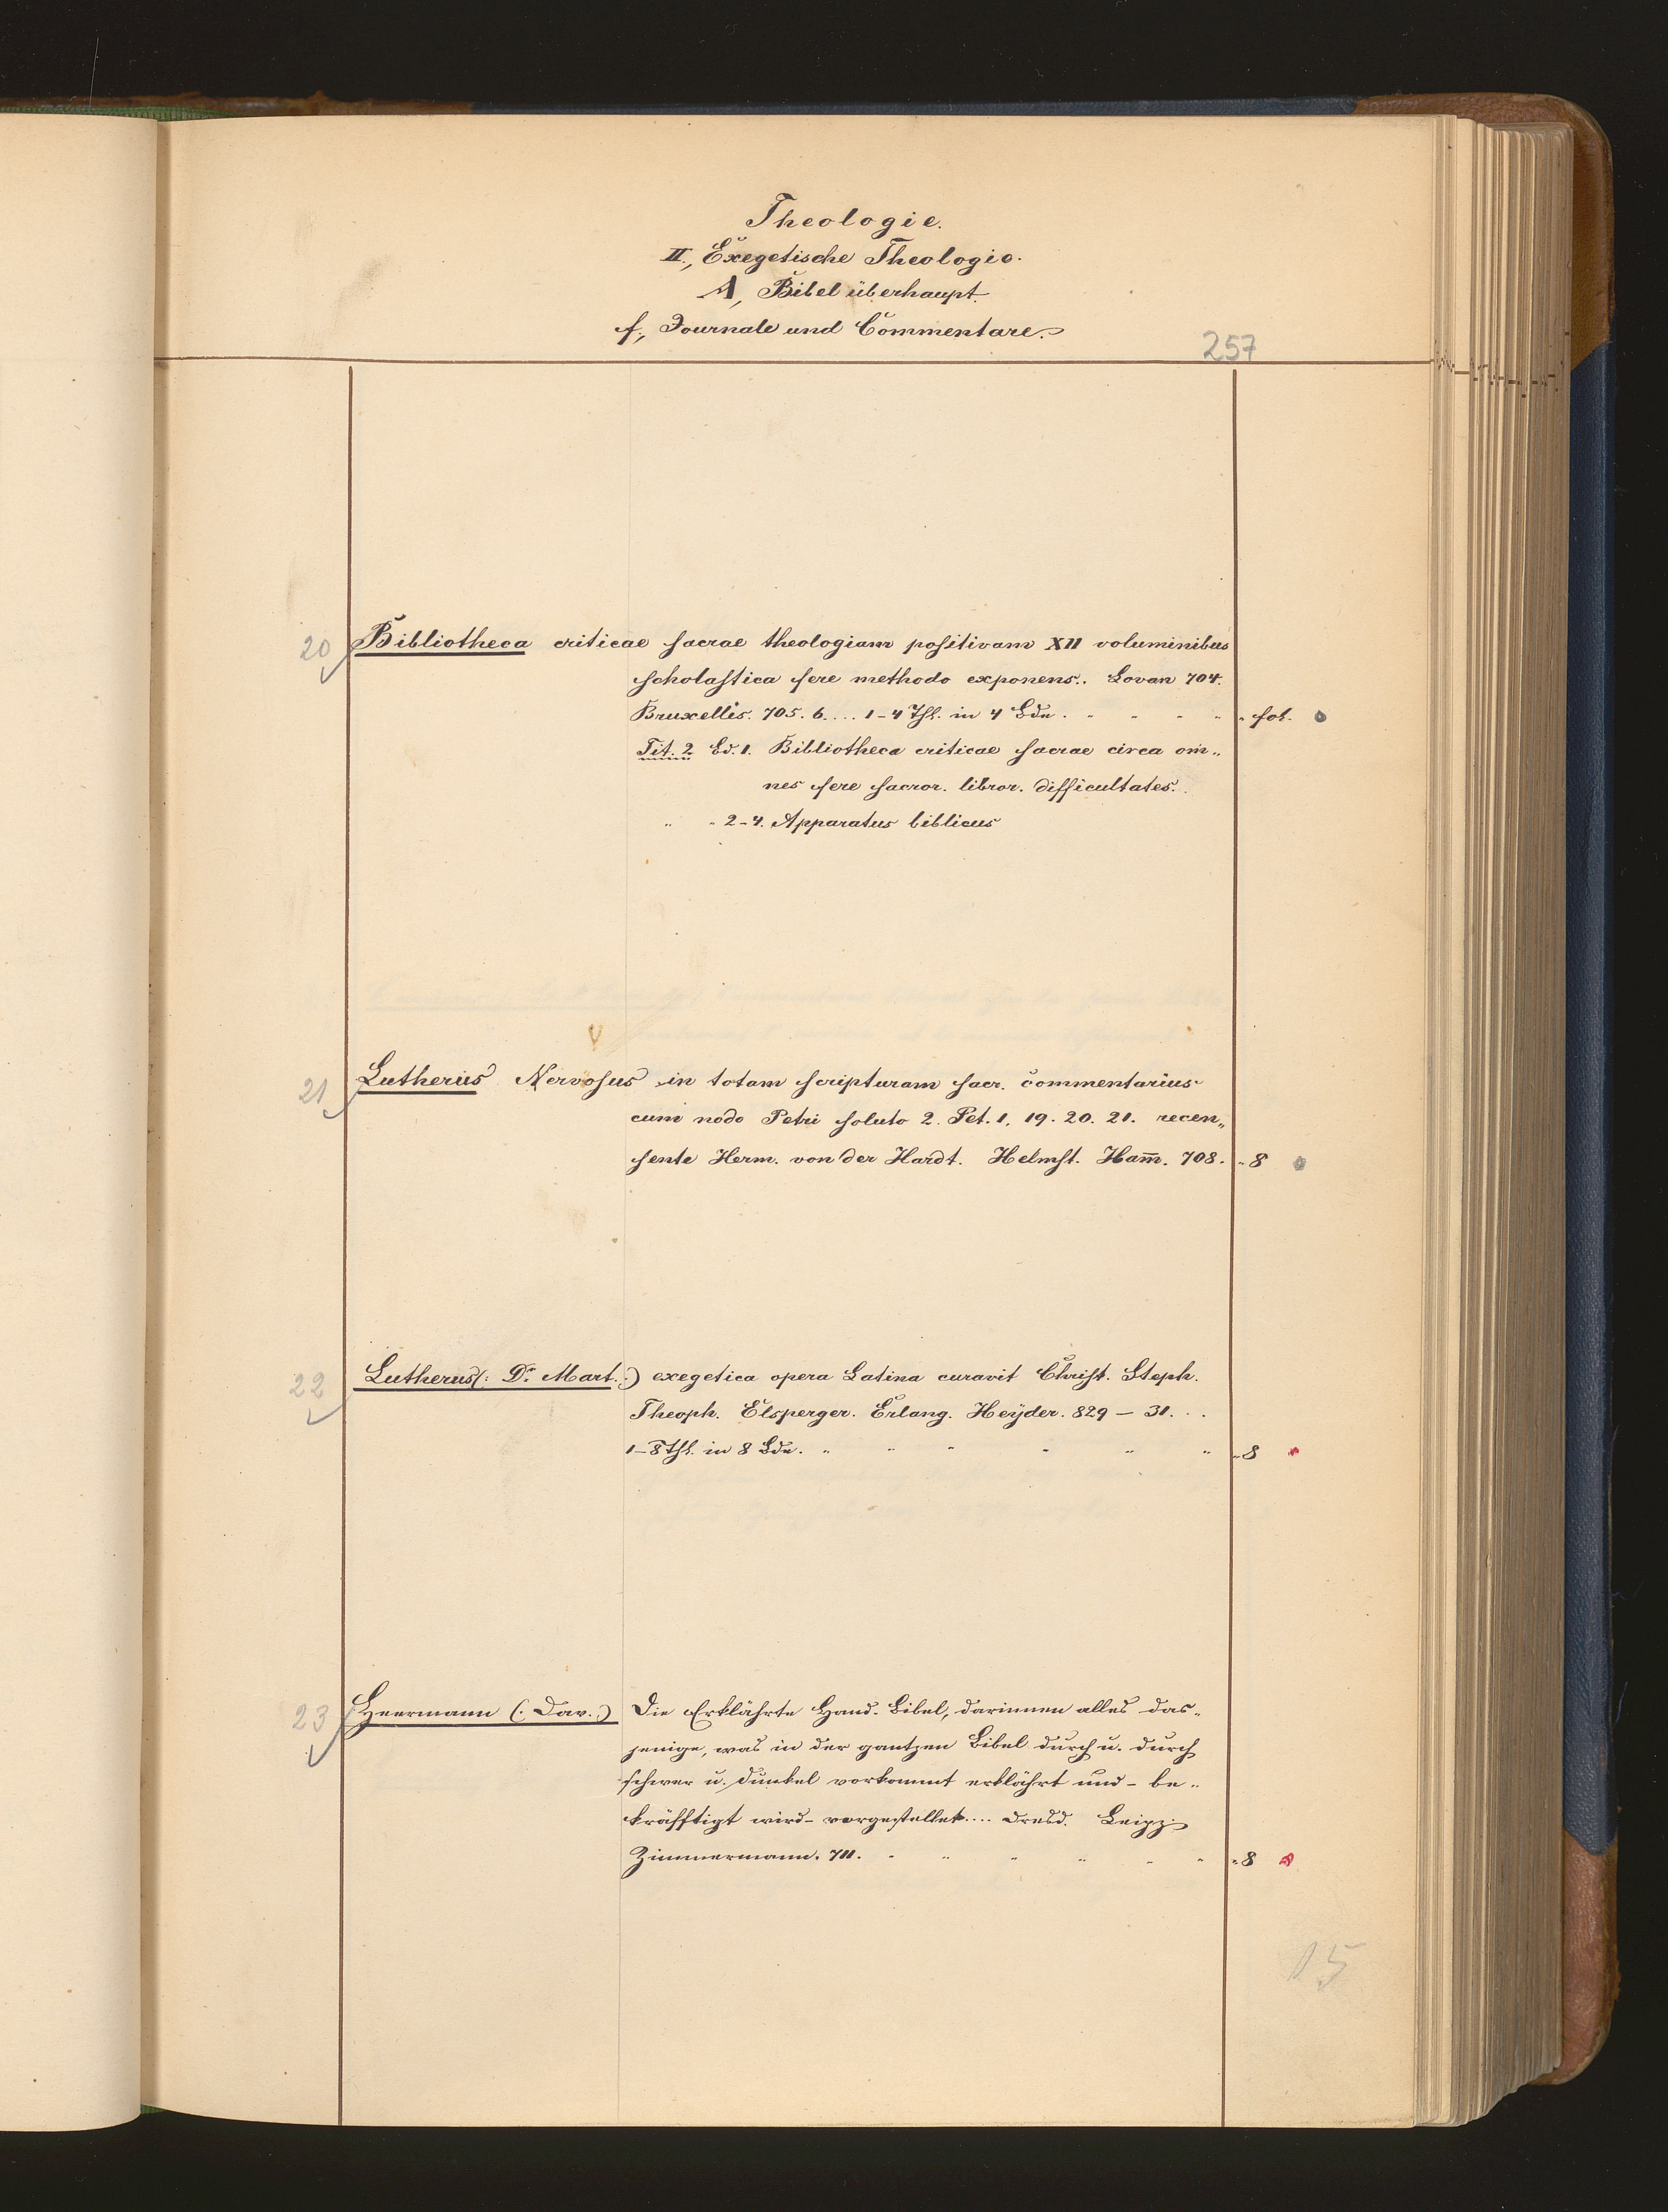 Theologie.
II., Exegetische Theologie.
A, Bibel überhaupt.
f., Journale und Commentare.
257
20 Bibliotheca criticae sacrae theologiam positivam XII voluminibus
scholastica fere methodo exponens.. Lovan 704.
Bruxellis. 705. 6.... 1-4 Thl. in 4 Bdn. " " " " fol.
Tit. 2 Bd. 1. Bibliotheca criticae sacrae circa om„
nes fere sacror. libror. difficultates.
" " 2-4. Apparatus biblicus
21 Lutherus Nervosus in totam scripturam sacr. commentarius
cum nodo Petri soluto 2. Pet. 1, 19. 20. 21. recen„
sente Herm. von der Hardt. Helmst. Ham̅. 708. " 8
22 Lutherus (: Dr. Mart. :) exegetica opera Latina curavit Christ. Steph.
Theoph. Elsperger. Erlang. Heÿder. 829 – 31...
1–8 Thl. in 8 Bdn. " " " " " " " 8
23 Heermann (: Dav. :) Die Erklährte Hand-Bibel, darinnen alles das„
jenige, was in der gantzen Bibel durch u. durch
schwer u. dunkel vorkommt erklährt und – be„
kräfftigt wird – vorgestellet.... Dresd. Leipz.
Zimmermann. 711. " " " " " " " 8
15